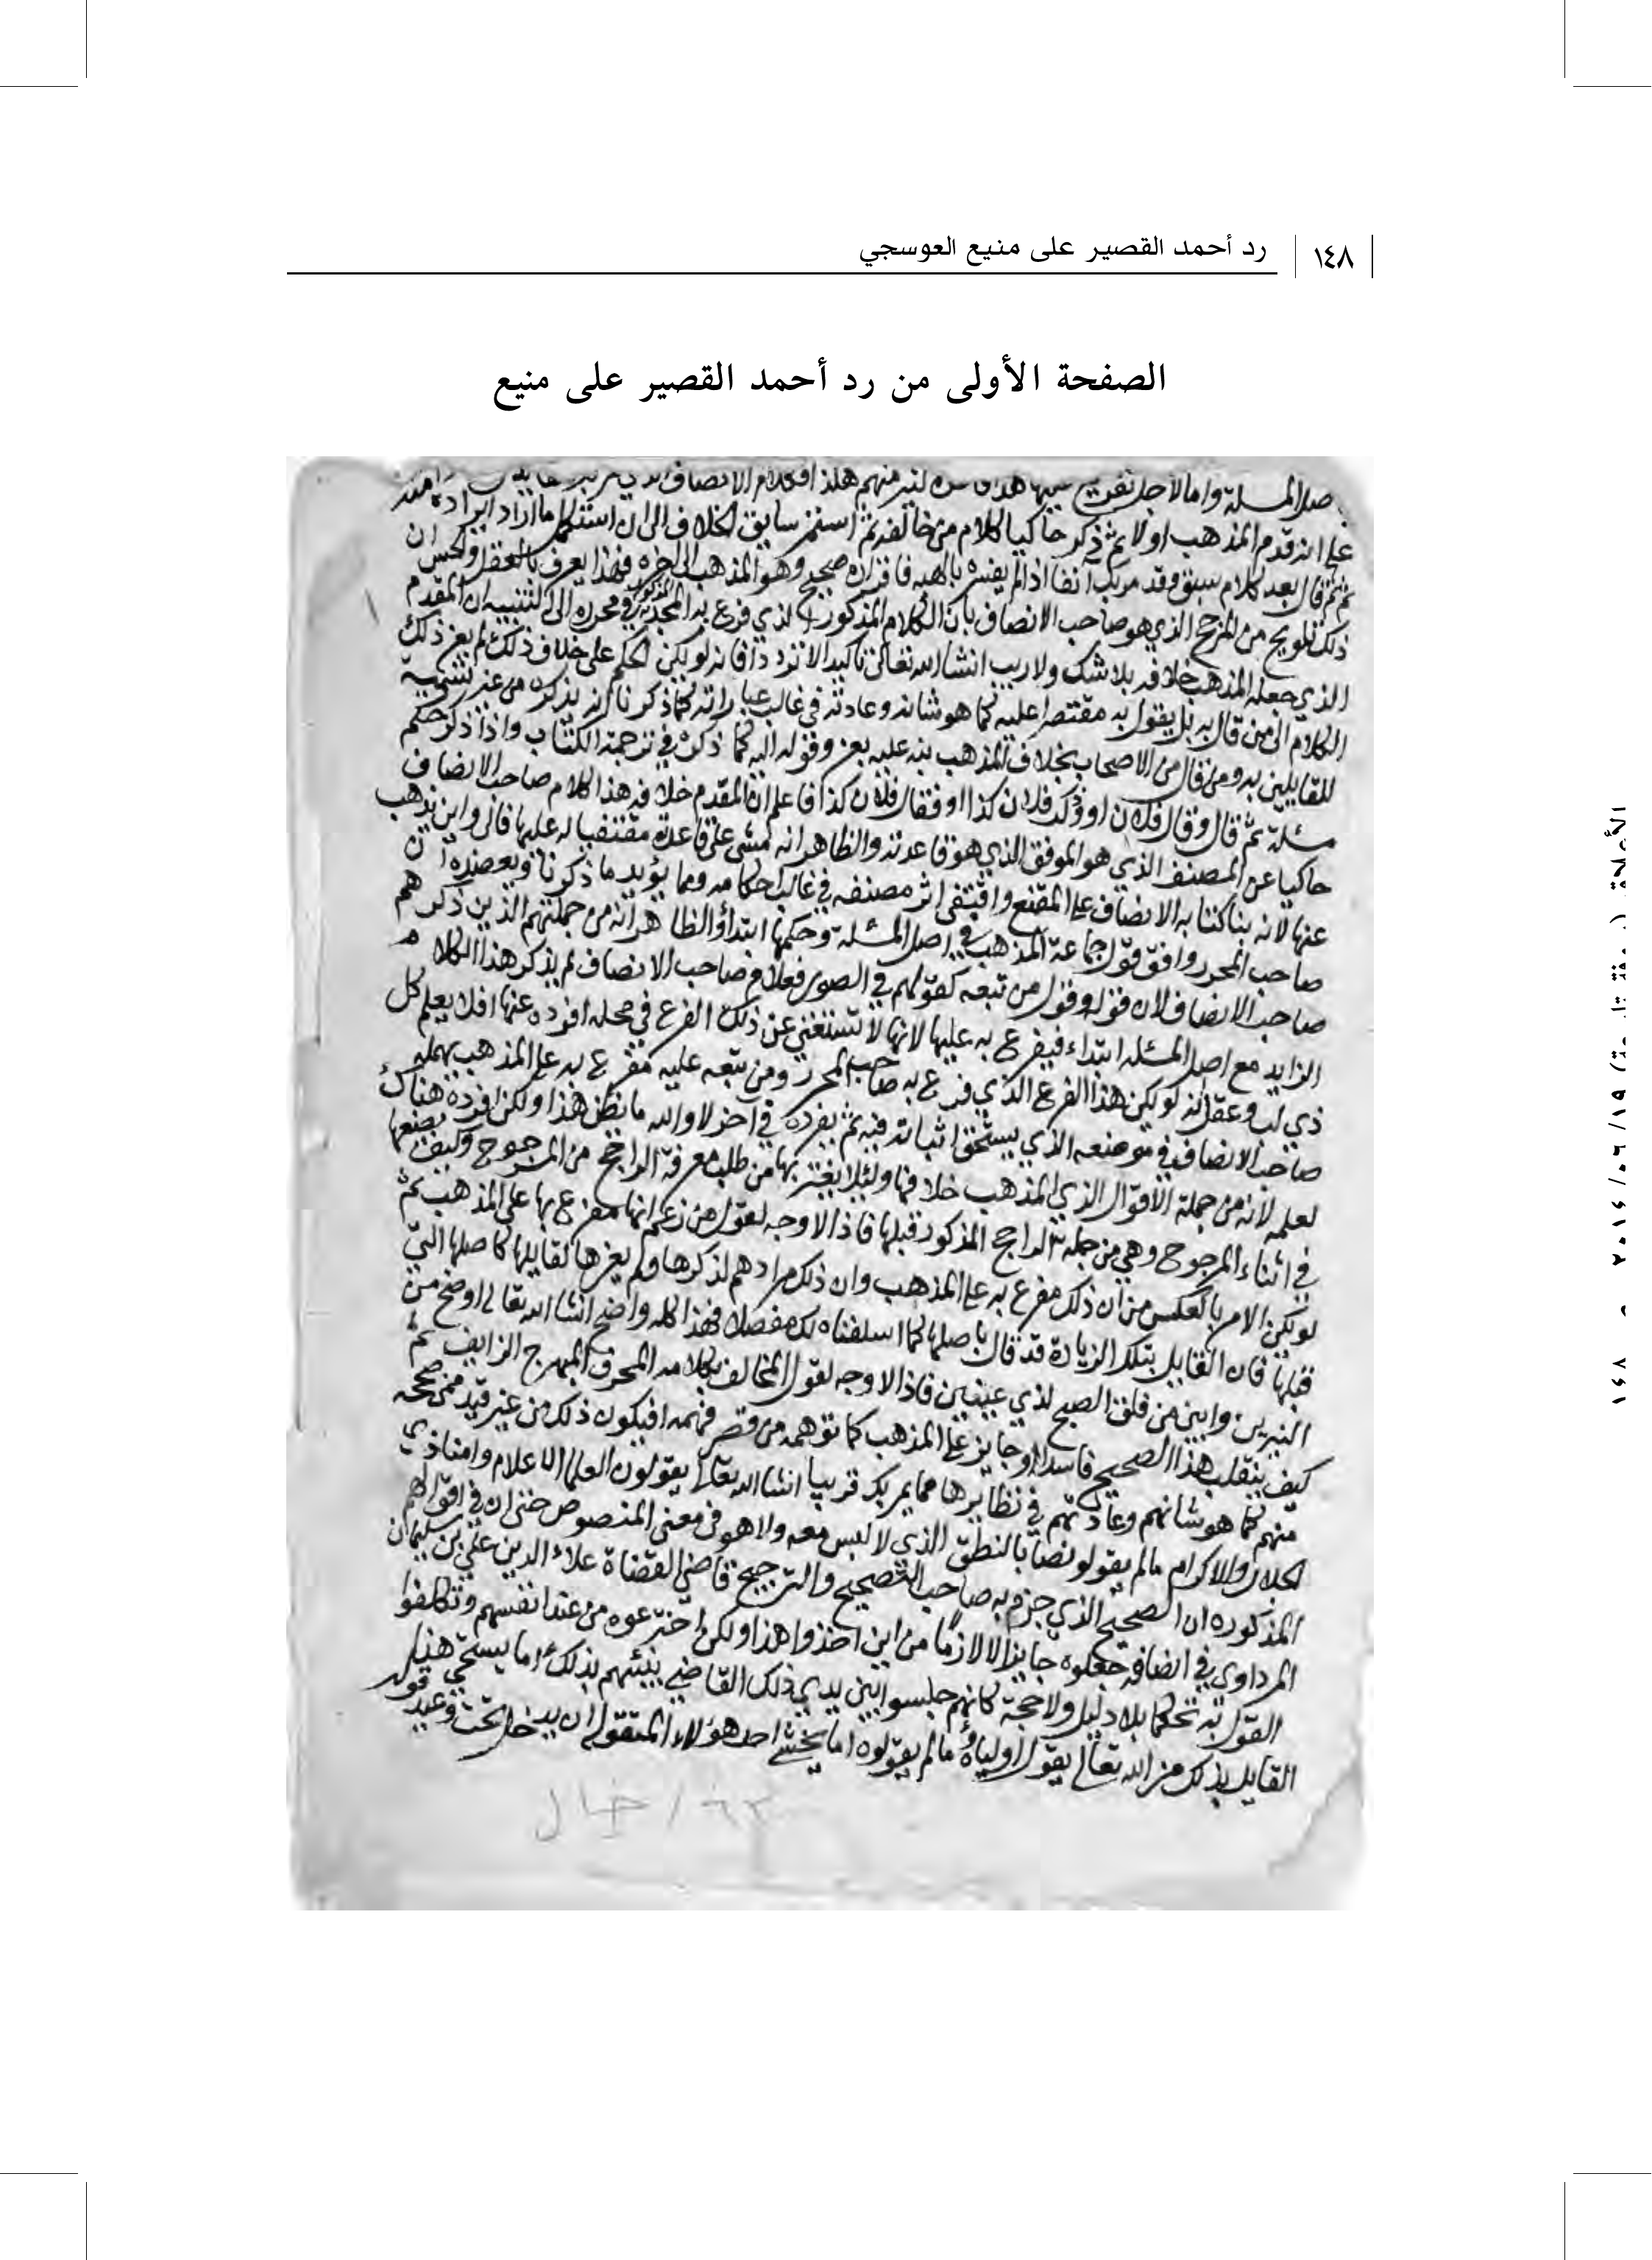 ١٤٨ رد أحمد القصير على منيع العوسجي
الصفحة الأولى من رد أحمد القصير على منيع
صل المسئلة واما لاجل منهم هذا وكلام الانصاف
على انه قدم المذهب اولا ثم ذكر حاكيا كلام من خالفه ثم استمر سابق الخلاف الى ان استكمل ما اراد ايراده منه
ثم قال بعد كلام سبق وقد مر بك انفا اذا لم يفسره بالهبة فاقراره صحيح وهو المذهب الى اخره فهذا يعرف بالعقل والحس ان
ذلك تلويح من المرجح الذي هو صاحب الانصاف بان الكلام المذكور الذي فرع به المجد في محرره المذكور الى التنبيه ان المقدم
الذي جعله المذهب خلافه بلا شك ولا ريب انشا الله تعالى تاكيد الا تردد فانه لو يكن الحكم على خلاف ذلك لم يعز ذلك
الكلام الى من قال به بل يقول به مقتصرا عليه كما هو شانه وعادته في غالب عباراته كما ذكرنا انه يذكره من غير تسمية
للقايلين به ومن قال من الاصحاب بخلاف المذهب ينبه عليه بعزو قوله اليه كما ذكره في ترجمة الكتاب واذا ذكر حكم
مسئلة ثم قال وقال فلان او وذكر فلان كذا او فقال فلان كذا فاعلم ان المقدم خلافه هذا كلام صاحب الانصاف
حاكيا عن المصنف الذي هو الموفق الذي هو قاعدته والظاهر انه مشى على قاعدته مقتفيا له عليها فانى واين يذهب
عنها لانه بنا كتابه الانصاف على المقنع واقتفى اثر مصنفه في غالب احكامه ومما يؤيد ما ذكرنا ويعضده ان
صاحب المحرر وافق قول جماعة المذهب في اصل المسئلة وحكمها ابتداء والظاهر انه من جملتهم الذين ذكرهم
صاحب الانصاف لان قوله وقول من تبعه كقولهم في الصور فعلام صاحب الانصاف لم يذكر هذا الكلام
الزايد مع اصل المسئله ابتداء فيفرع به عليها لانها لا تستغني عن ذلك الفرع في محله افرده عنها افلا يعلم كل
ذي لب وعقل انه لو يكن هذا الفرع الذي فرع به صاحب المحرر ومن تبعه عليه مفرع به على المذهب يهمله
صاحب الانصاف في موضعه الذي يستحق اثباته فيه ثم يفرده في آخر لا والله ما نظن هذا ولكن افرده هناك
لعلمه لانه من جملة الاقوال الذي المذهب خلافها ولئلا يغتر بها من طلب معرفة الراجح من المرجوح وكيف يضعها
في اثناء المرجوح وهي من جملة الراجح المذكور قبلها فاذا لا وجه لقول من زعم انها مفرع بها على المذهب ثم
لو يكن الامر بالعكس من ان ذلك مفرع به على المذهب وان ذلك مرادهم لذكرها ولم يعزها لقايلها كاصلها التي
قبلها فان القايل بتلك الزيادة قد قال باصلها كما اسلفناه لك مفصلا فهذا كله واضح انشا الله تعالى اوضح من
النيرين وابين من فلق الصبح لذي عينين فاذا لا وجه لقول المخالف بكلامه المحرف المبهرج الزايف ثم
كيف ينقلب هذا الصحيح فاسدا او جايز على المذهب كما توهمه من قصر فهمه افيكون ذلك من غير قيد ممن صححه
منهم كما هو شانهم وعادتهم في نظايرها مما يمر بك قريبا انشا الله تعالى ايقولون العلما الاعلام وامناذي
الجلال والاكرام ما لم يقولو نصا بالنطق الذي لا لبس معه ولا هو في معنى المنصوص حتى ان في اقوالهم
المذكوره ان الصحيح الذي جزم به صاحب التصحيح والترجيح قاضي القضاة علاء الدين علي بن سليمان
المرداوي في انصافه جعلوه جايزا لا لازما من اين اخذوا هذا ولكن اخترعوه من عند انفسهم وتكلفوا
القول به تحكما بلا دليل ولا حجة كانهم جلسوا بين يدي ذلك القاضي ينبئهم بذلك اما يستحي هذا
القايل بذلك من الله تعالى يقول اولياؤه ما لم يقولوه اما يخشى احد هؤلاء المتقوله ان يدخل تحت وعيد قوله